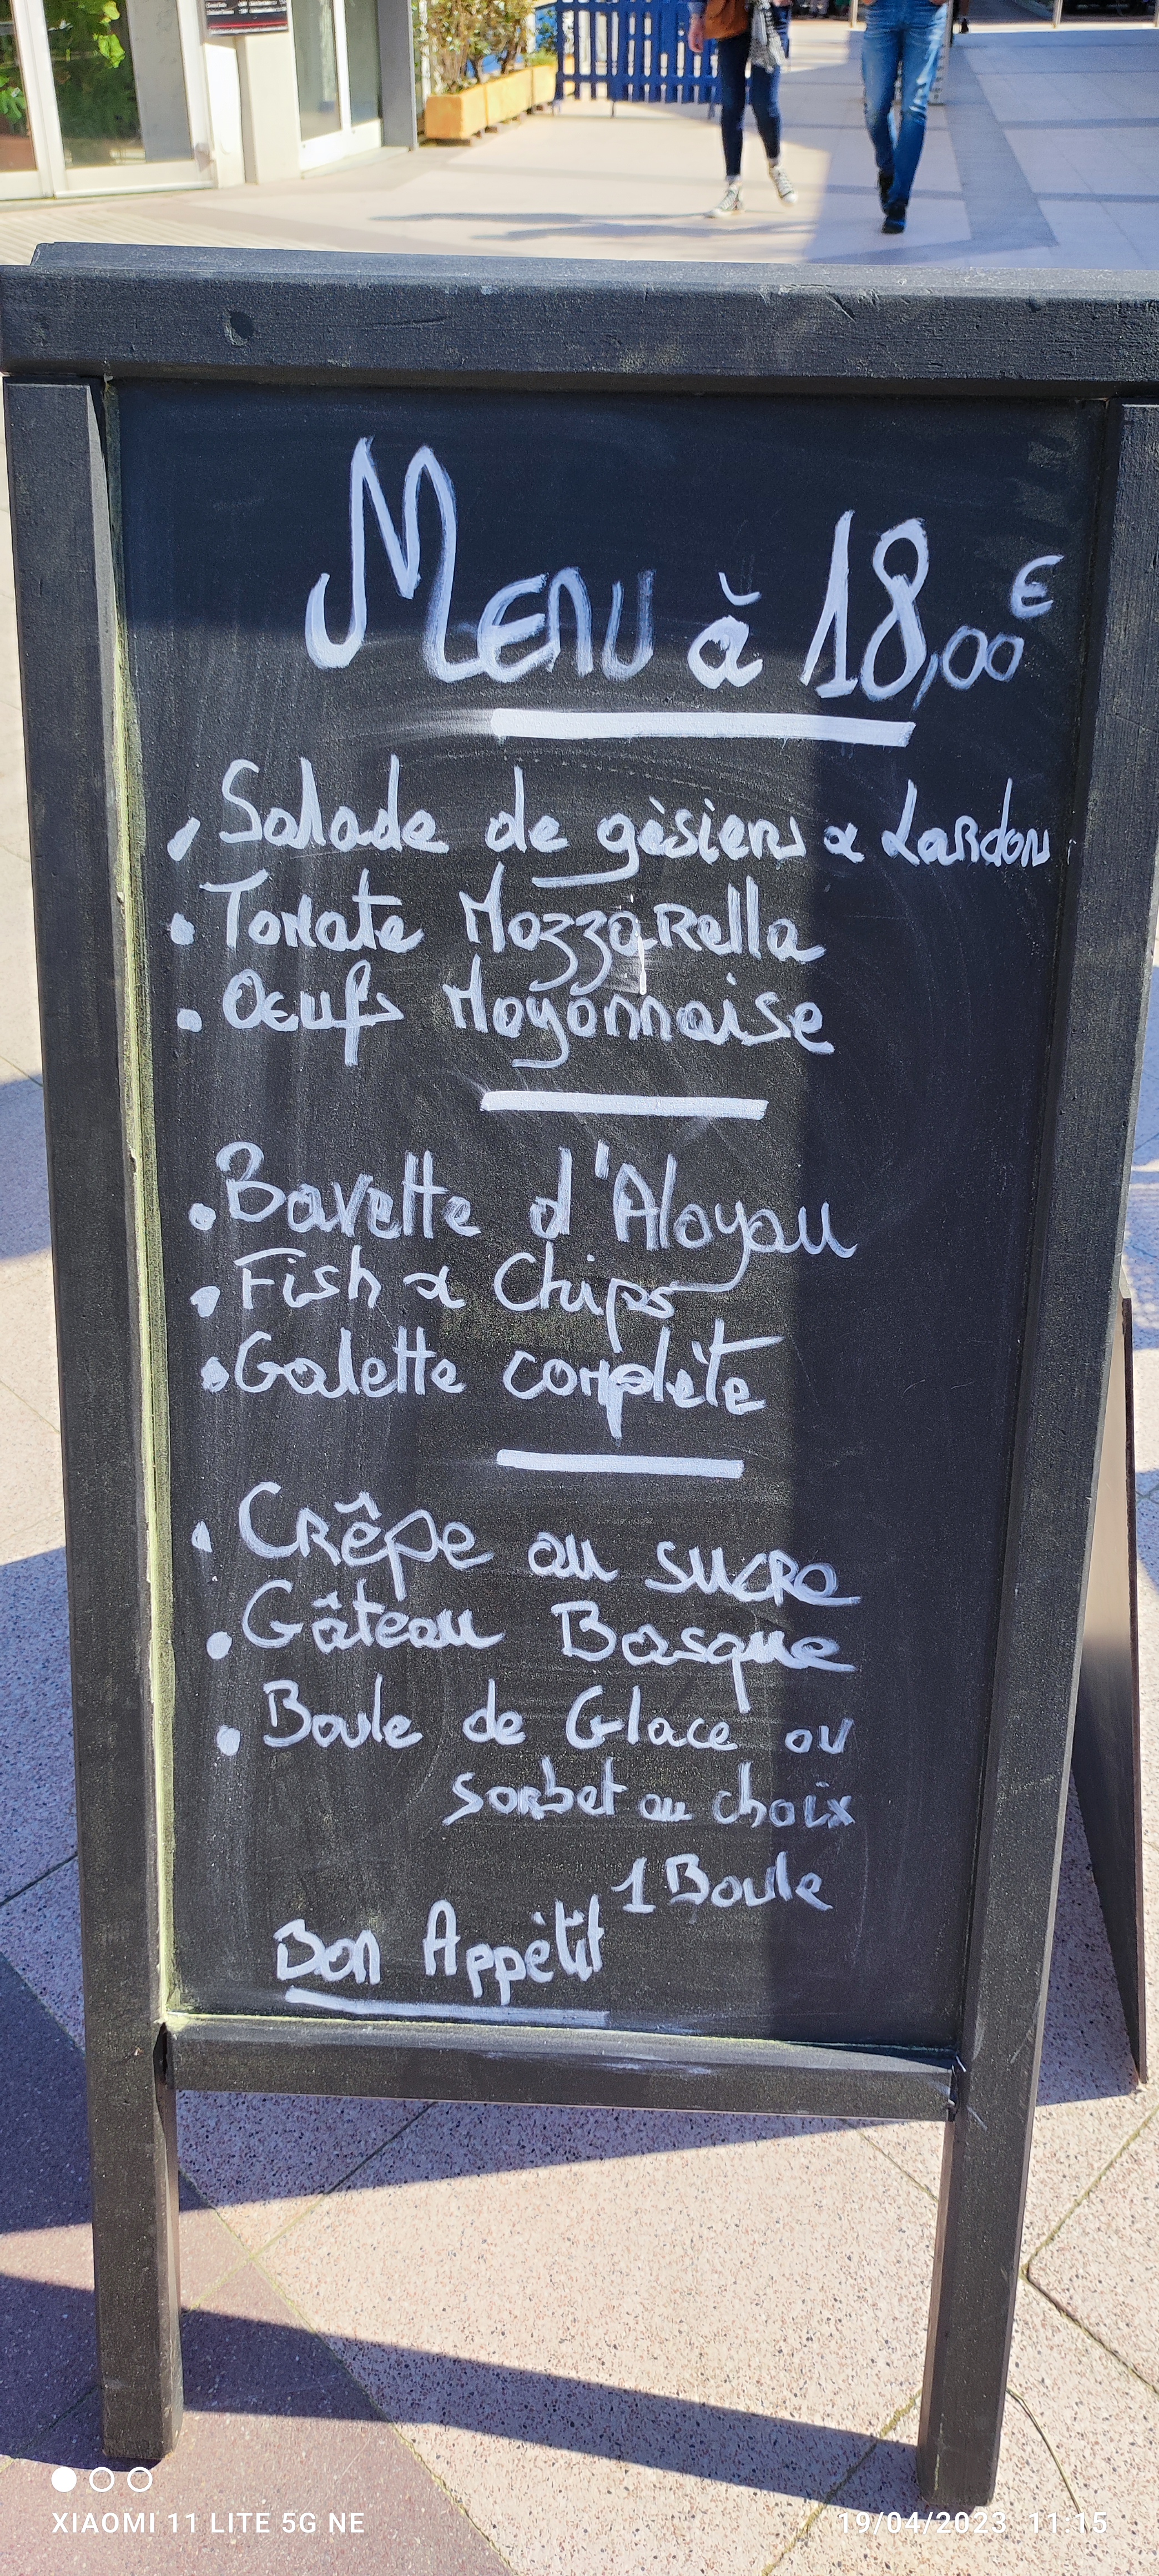 Menu à 18,00€
• Salade de gèsiers & Lardon
• Tomate Mozzarella
• Oeufs Mayonnaise
• Bavette d'Aloyau
• Fish & Chips
• Galette complète
• Crêpe au sucre
• Gâteau Basque
• Boule de Glace ou
sorbet au choix
1 Boule
Bon Appétit
XIAOMI 11 LITE 5G NE
19/04/2023 11:15